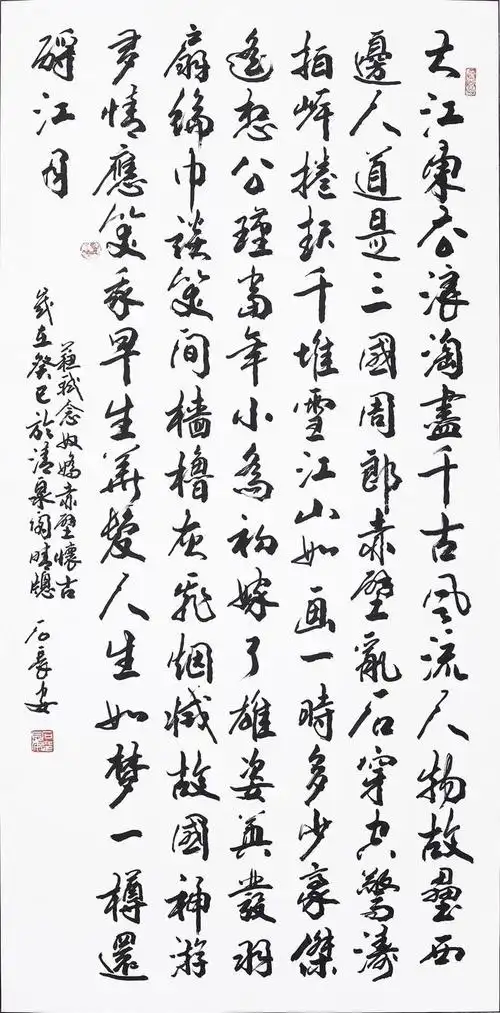 大江東去浪淘盡千古風流人物故壘西
邊人道是三國周郎赤壁亂石穿空驚濤
拍岸捲起千堆雪江山如画一時多少豪傑
遙想公瑾當年小喬初嫁了雄姿英發羽
扇綸巾談笑間檣櫓灰飛烟滅故國神游
多情應笑我早生華髮人生如梦一樽還
酹江月
蘇軾念奴嬌赤壁懷古
歲在癸巳於清泉閣晴窗